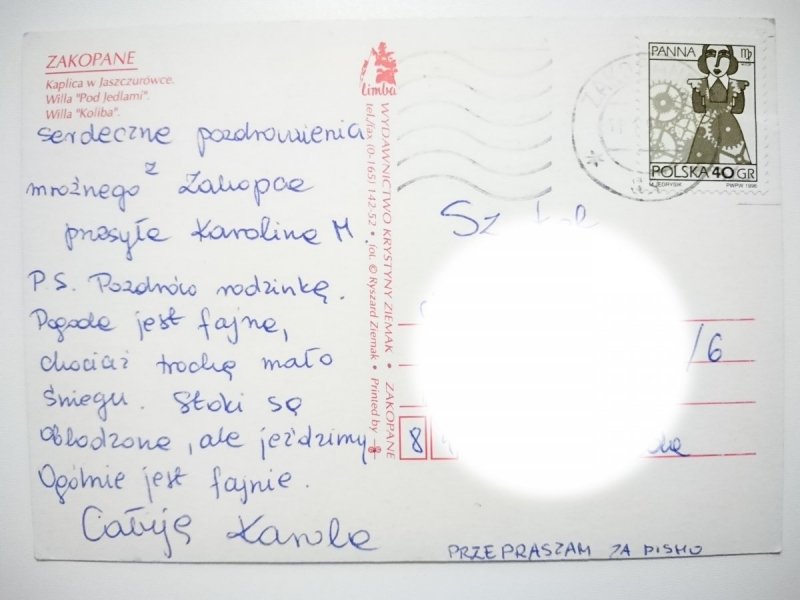 ZAKOPANE
Kaplica w Jaszczurówce.
Willa "Pod Jedlami".
Willa "Koliba".
Serdeczne pozdrowienia
z
mroźnego Zakopca
przesyła Karolina M.
P.S. Pozdrów rodzinkę.
Pogoda jest fajna,
chociaż trochę mało
śniegu. Stoki są
oblodzone, ale jeździmy
Ogólnie jest fajnie.
Całuję Karola
limba
WYDAWNICTWO KRYSTYNY ZIEMAK • ZAKOPANE
tel./fax (0-165) 142 52 • fot. © Ryszard Ziemak • Printed by
PANNA
POLSKA 40 GR
M. JĘDRYSIK PWPW 1996
Sz
/6
8
PRZEPRASZAM ZA PISMO